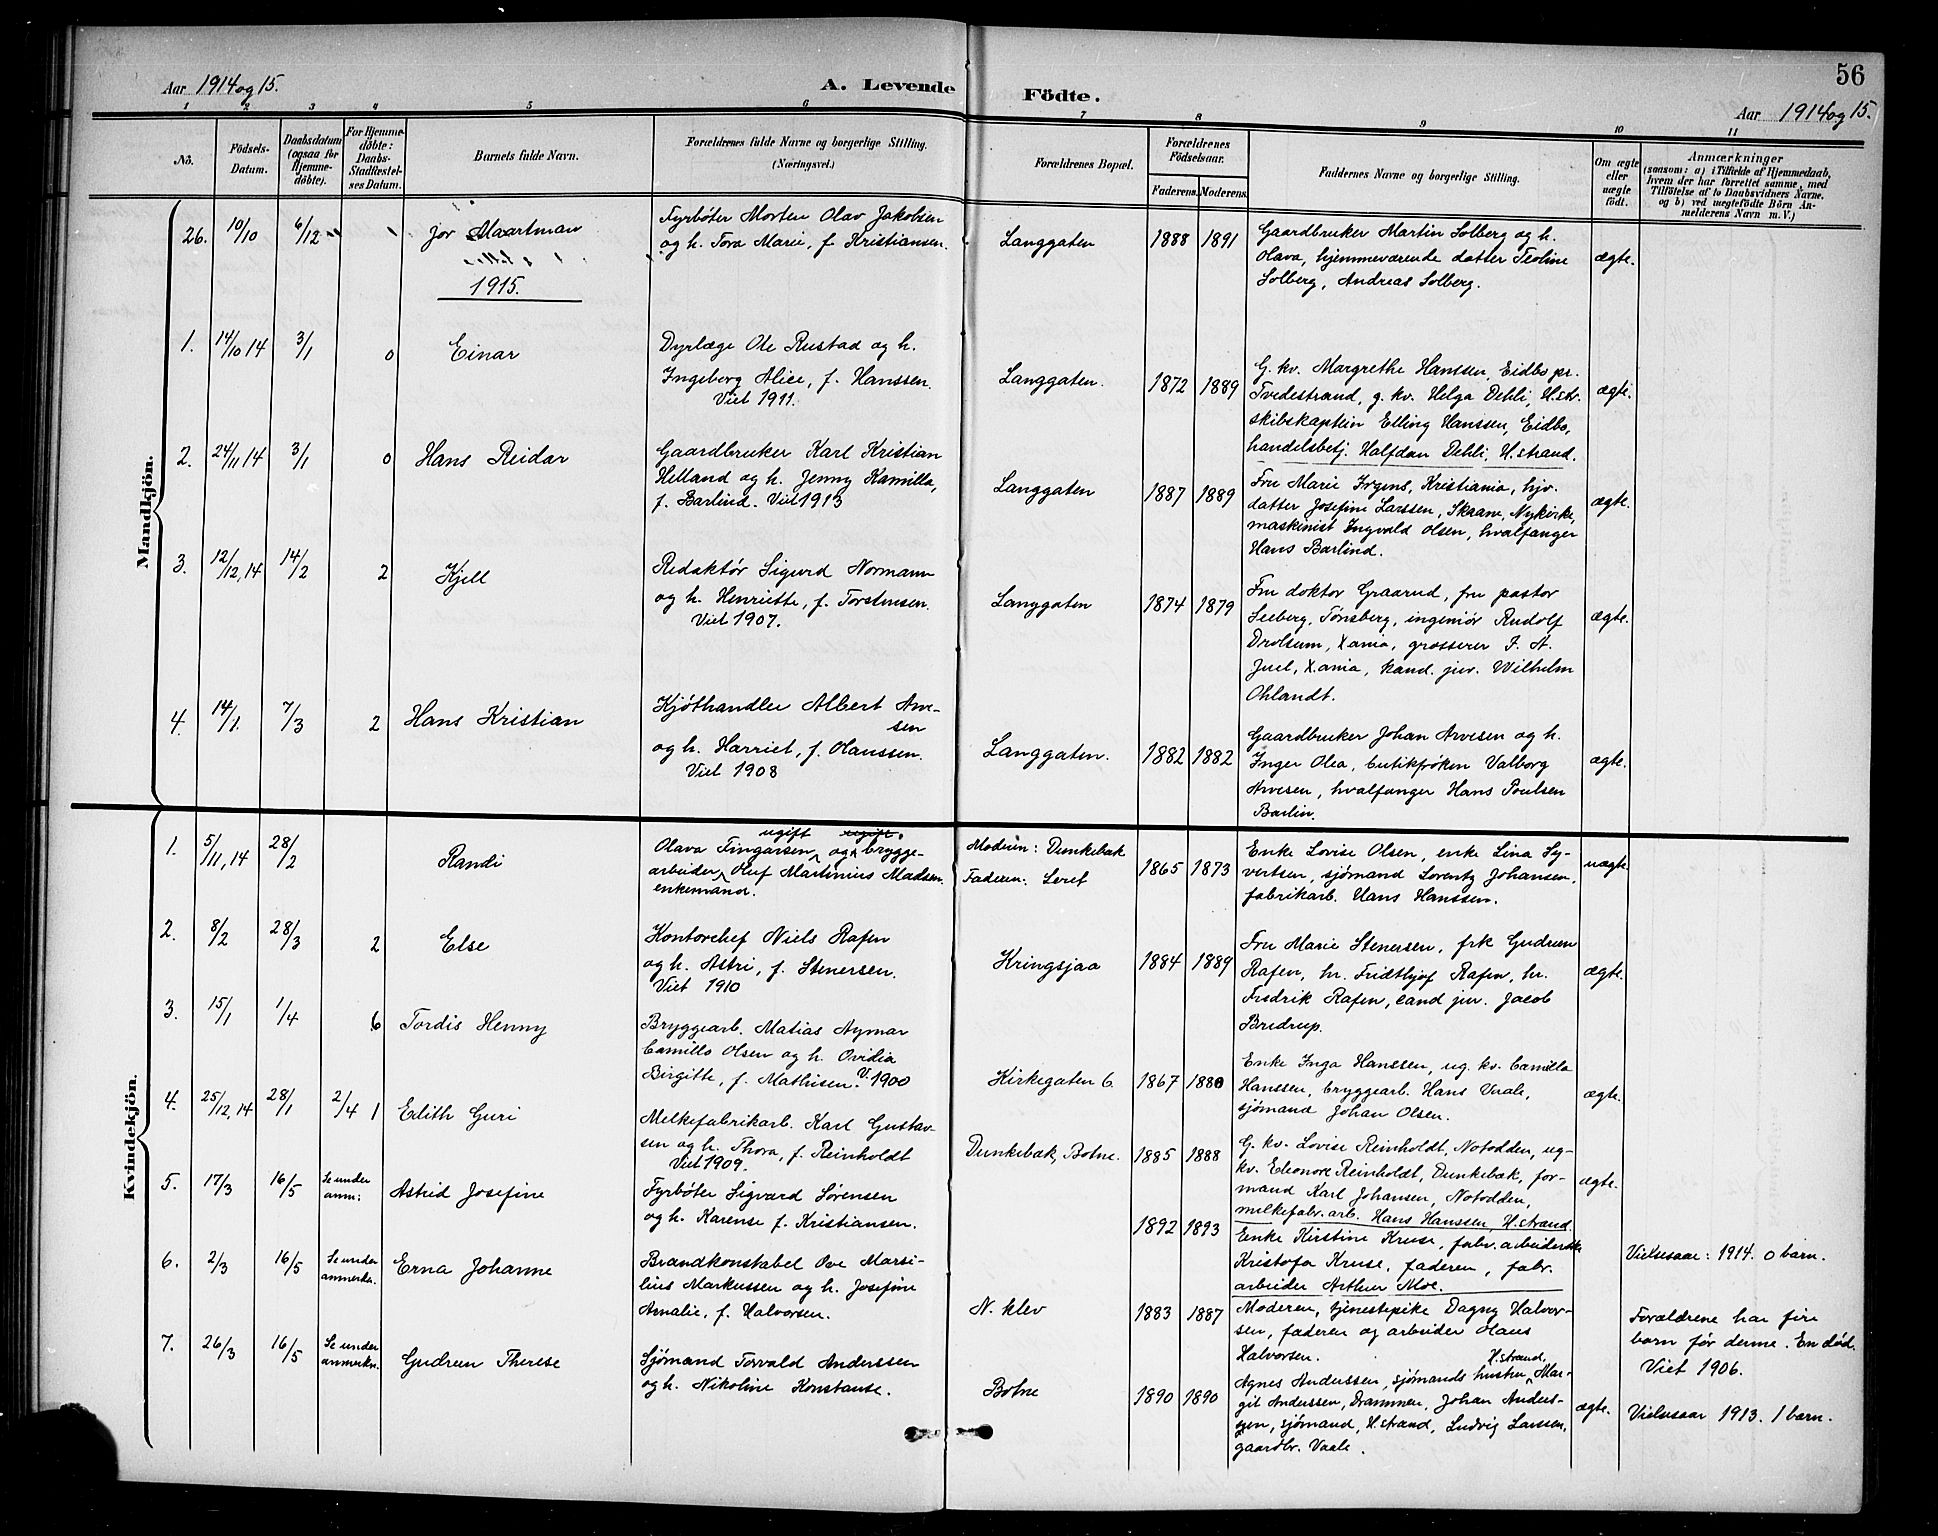 56
Aar 1914 og 15.
A. Levende Födte.
Aar 1914 og 15.
1 2 3 4 5 6 7 8 9 10 11
Nò.
Födsels-Datum.
Daabsdatum (ogsaa for Hjemmedöbte).
For Hjemmedöbte: Daabs-Stadfæstelses Datum.
Barnets fulde Navn.
Forældrenes fulde Navne og borgerlige Stilling. (Næringsvei.)
Forældrenes Bopæl.
Forældrenes Födselsaar.
Faderens. Moderens.
Faddernes Navne og borgerlige Stilling.
Om ægte eller uægte født.
Anmærkninger
(saasom: a) i Tilfælde af Hjemmedaab, hvem der har forrettet samme, med Tilföielse af to Daabsvidners Navne, og b) ved uægtefödte Börn Anmelderens Navn m. V.)
Mandkjön.
26. 10/10 6/12 Jor Maartman
Fyrbøter Morten Olav Jakobsen
og h. Tora Marie, f. Kristiansen.
Langgaten 1888 1891
Gaardbruker Martin Solberg og h.
Olava, hjemmeværende datter Teoline
Solberg, Andreas Solberg.
ægte.
1915.
1. 14/10 14 3/1 0 Einar
Dyrlæge Ole Rustad og h.
Ingeborg Alice, f. Hanssen.
Viet 1911.
Langgaten. 1872 1889
G. kv. Margrethe Hanssen, Eidbo pr.
Tvedestrand, g. kv. Helga Dehli, H.str.
skibskaptein Elling Hanssen, Eidbo,
handelsbetj. Halfdan Dehli, H.strand.
ægte.
2. 24/11 14 3/1 0 Hans Reidar
Gaardbruker Karl Kristian
Helland og h. Jenny Kamilla,
f. Barlind. Viet 1913
Langgaten 1887 1889
Fru Marie Irgens, Kristiania, hjv.
datter Josefine Larssen, Skaane, Nykirke,
maskinist Ingvald Olsen, hvalfanger
Hans Barlind.
ægte.
3. 12/12, 14 14/2 2 Kjell
Redaktør Sigurd Normann
og h. Henriette, f. Torstensen.
Viet 1907.
Langgaten 1874 1879
Fru doktor Graarud, fru pastor
Seeberg, Tønsberg, ingeniør Rudolf
Drolsum, Xania, grosserer F. A.
Juel, Xania, kand. jur. Wilhelm
Ohlandt.
ægte.
4. 14/1. 7/3 2 Hans Kristian
Kjøthandler Albert Arve-
sen
og h. Harriet, f. Olaussen.
Viet 1908
Langgaten. 1882 1882
Gaardbruker Johan Arvesen og h.
Inger Olea, butikfrøken Valborg
Arvesen, hvalfanger Hans Poulsen
Barlin.
ægte.
Kvindekjön.
1. 5/11, 14 28/2 Randi
ugift
Olava Fingarsen, og brygge-
arbeider Oluf Martinius Madsen
enkemand.
Moderen: Dunkebæk
Faderen: Leret
1865 1873
Enke Lovise Olsen, enke Lina Sy-
vertsen, sjømand Lorentz Johansen,
fabrikarb. Hans Hanssen.
uægte.
2. 8/2 28/3 2 Else
Kontorchef Niels Rafen
og h. Astri, f. Stenersen.
Viet 1910
Kringsjaa 1884 1889
Fru Marie Stenersen, frk Gudrun
Rafen, hr. Fridthjof Rafen, hr.
Fredrik Rafen, cand jur. Jacob
Bredrup.
ægte.
3. 15/1 1/4 6 Tordis Henny
Bryggearb. Matias Aymar
Camillo Olsen og h. Ovidia
Birgitte, f. Mathisen. V. 1900
Kirkegaten 6 1867 1880
Enke Inga Hanssen, ug. kv. Camilla
Hanssen, bryggearb. Hans Vaale,
sjømand Johan Olsen.
ægte.
4. 25/12, 14 28/1 2/4 1 Edith Guri
Melkefabrikarb. Karl Gustav-
sen og h. Thora, f. Reinholdt
Viet 1909.
Dunkebæk, Botne. 1885 1888
G. kv. Lovise Reinholdt, Notodden, ug-
kv. Eleonore Reinholdt, Dunkebæk, for-
mand Karl Johansen, Notodden,
melkefabr.arb. Hans Hanssen, H.strand.
ægte.
5. 17/3 16/5 Se under anm: Astrid Josefine
Fyrbøter Sigvard Sørensen
og h. Karense f. Kristiansen.
1892 1893
Enke Kirstine Kruse, fabr.arbeiderske
Kristofa Kruse, faderen, fabr.
arbeider Arthur Moe.
Vielsesaar: 1914. 0 barn.
6. 2/3 16/5 Se under anmerkn. Erna Johanne
Brandkonstabel Ove Marsi-
lius Markussen og h. Josefine
Amalie, f. Halvorsen.
N. klev 1883 1887
Moderen, tjenestepike Dagny Halvor-
sen, faderen og arbeider Olaus
Halvorsen.
Forældrene har fire
barn før denne. En død.
Viet 1906.
7. 26/3 16/5 Se under anmerkn. Gudrun Therese
Sjømand Torvald Anderssen
og h. Nikoline Konstanse.
Botne 1890 1890
H.strand,
Agnes Anderssen, sjømands hustru, Mar-
git Anderssen, Drammen, Johan Anders-
sen, sjømand, H.strand, Ludvig Larssen,
gaardbr. Vaale.
ægte.
Vielsesaar 1913. 1 barn.